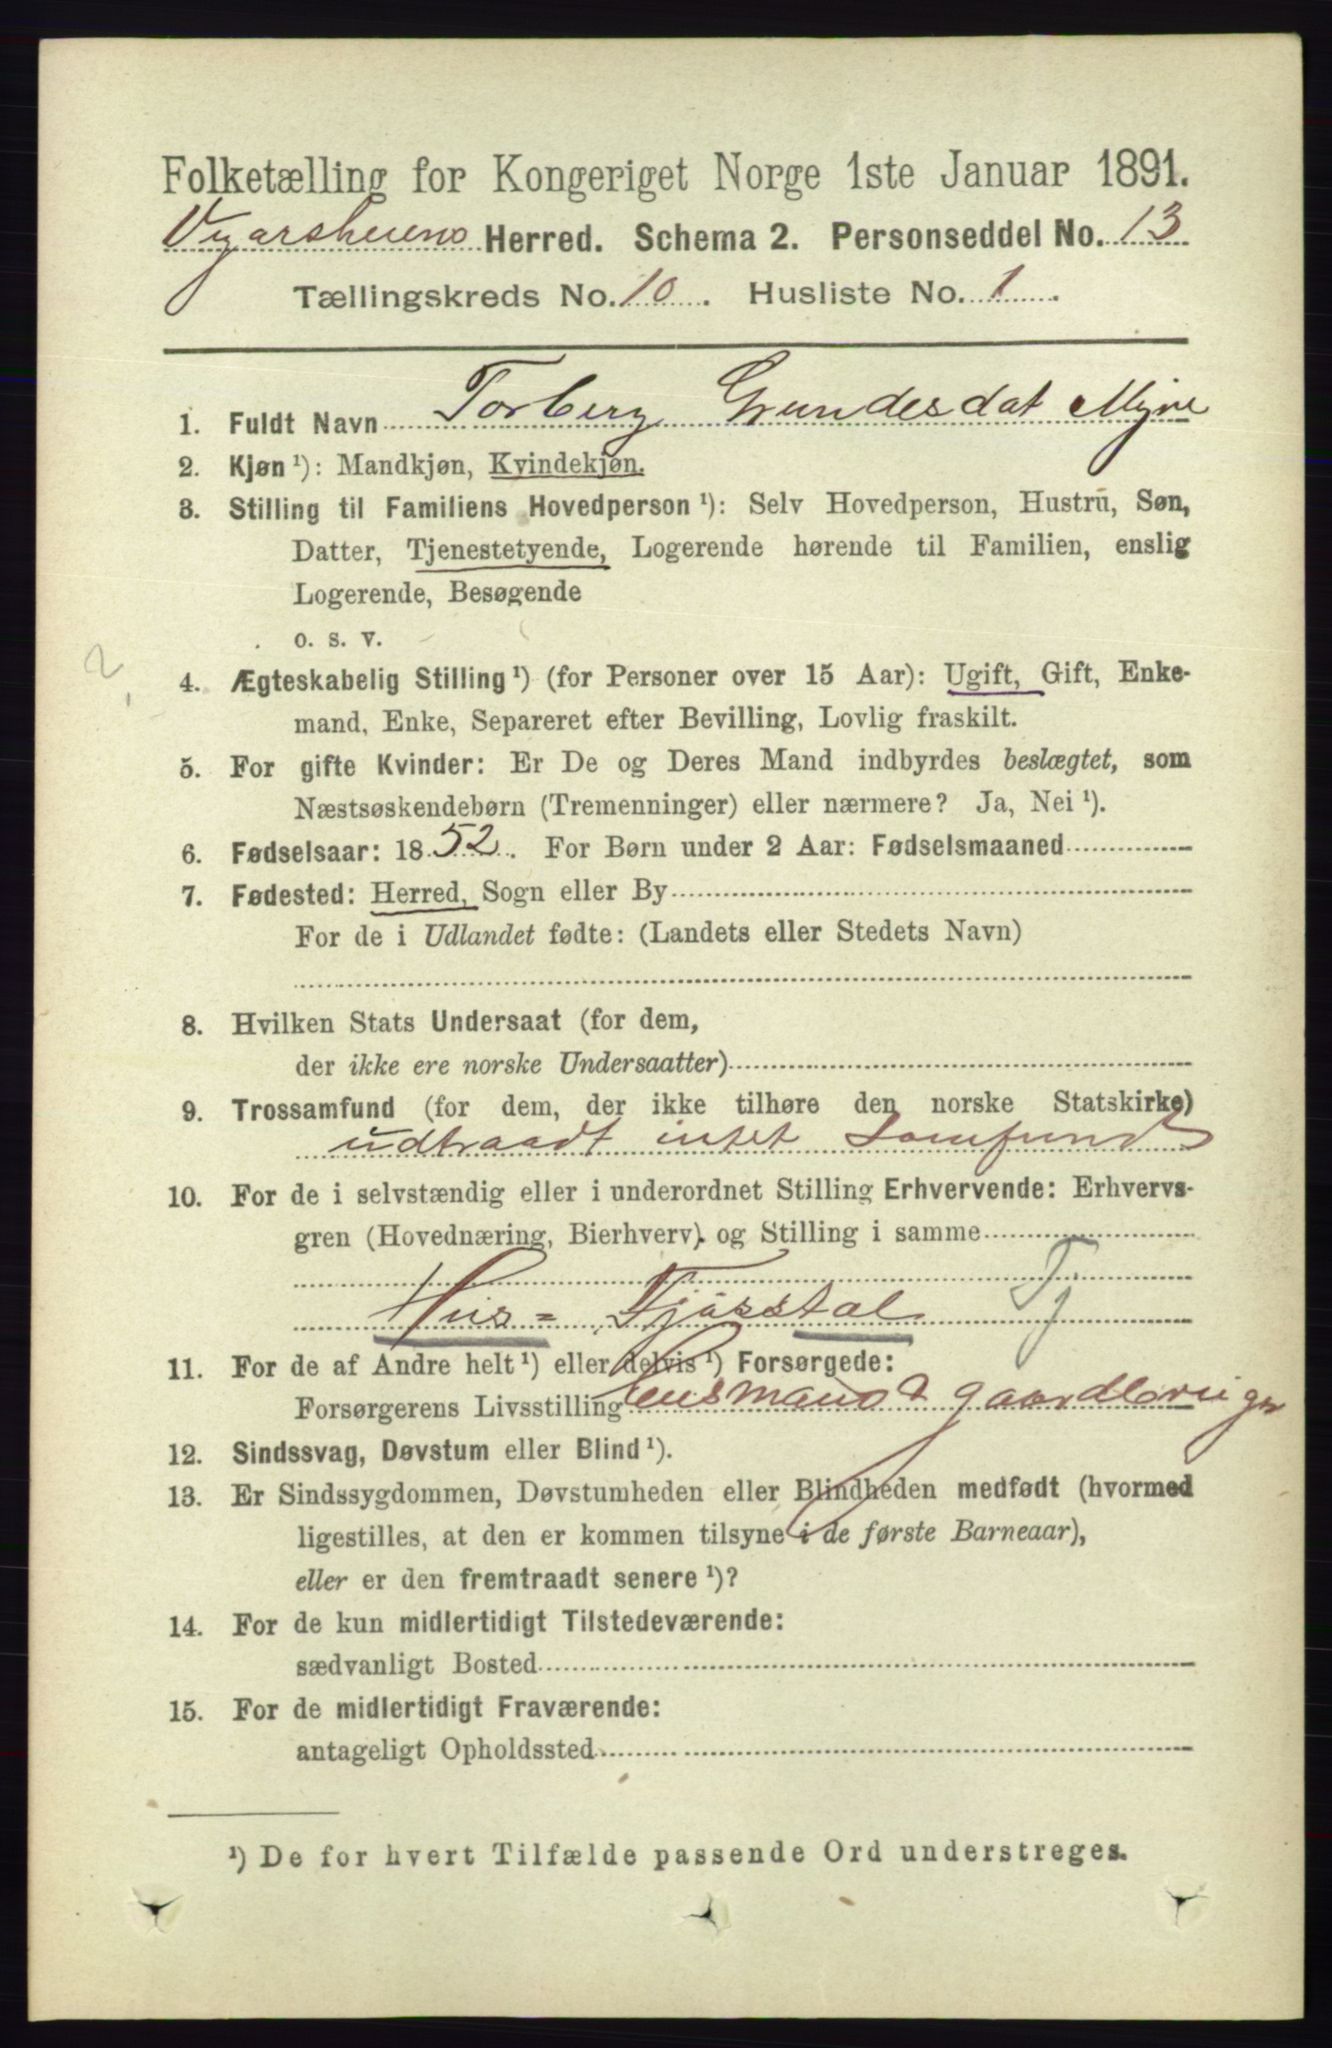 Folketælling for Kongeriget Norge 1ste Januar 1891.
Vegarsheiens Herred. Schema 2. Personseddel No. 13
Tællingskreds No. 10. Husliste No. 1.
1. Fuldt Navn Torberg Gundesdat Myre
2. Kjøn ¹): Mandkjøn, Kvindekjøn.
3. Stilling til Familiens Hovedperson ¹): Selv Hovedperson, Hustru, Søn,
Datter, Tjenestetyende, Logerende hørende til Familien, enslig
Logerende, Besøgende
o. s. v.
2
4. Ægteskabelig Stilling ¹) (for Personer over 15 Aar): Ugift, Gift, Enke-
mand, Enke, Separeret efter Bevilling, Lovlig fraskilt.
5. For gifte Kvinder: Er De og Deres Mand indbyrdes beslægtet, som
Næstsøskendebørn (Tremenninger) eller nærmere? Ja, Nei ¹).
6. Fødselsaar: 1852. For Børn under 2 Aar: Fødselsmaaned
7. Fødested: Herred, Sogn eller By
For de i Udlandet fødte: (Landets eller Stedets Navn)
8. Hvilken Stats Undersaat (for dem,
der ikke ere norske Undersaatter)
9. Trossamfund (for dem, der ikke tilhøre den norske Statskirke)
udtraadt intet Samfund
10. For de i selvstændig eller i underordnet Stilling Erhvervende: Erhvervs-
gren (Hovednæring, Bierhverv) og Stilling i samme
Hus- Fjøsstal Tj
11. For de af Andre helt ¹) eller delvis ¹) Forsørgede:
Forsørgerens Livsstilling
12. Sindssvag, Døvstum eller Blind ¹).
13. Er Sindssygdommen, Døvstumheden eller Blindheden medfødt (hvormed
ligestilles, at den er kommen tilsyne i de første Barneaar),
eller er den fremtraadt senere ¹)?
14. For de kun midlertidigt Tilstedeværende:
sædvanligt Bosted
15. For de midlertidigt Fraværende:
antageligt Opholdssted
¹) De for hvert Tilfælde passende Ord understreges.